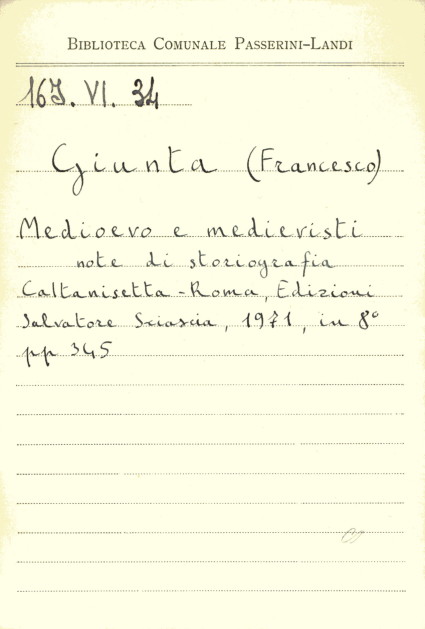 BIBLIOTECA COMUNALE PASSERINI-LANDI
16J. VI. 34
Giunta (Francesco)
Medioevo e medievisti
note di storiografia
Caltanisetta - Roma, Edizioni
Salvatore Sciascia, 1971, in 8°
pp 345